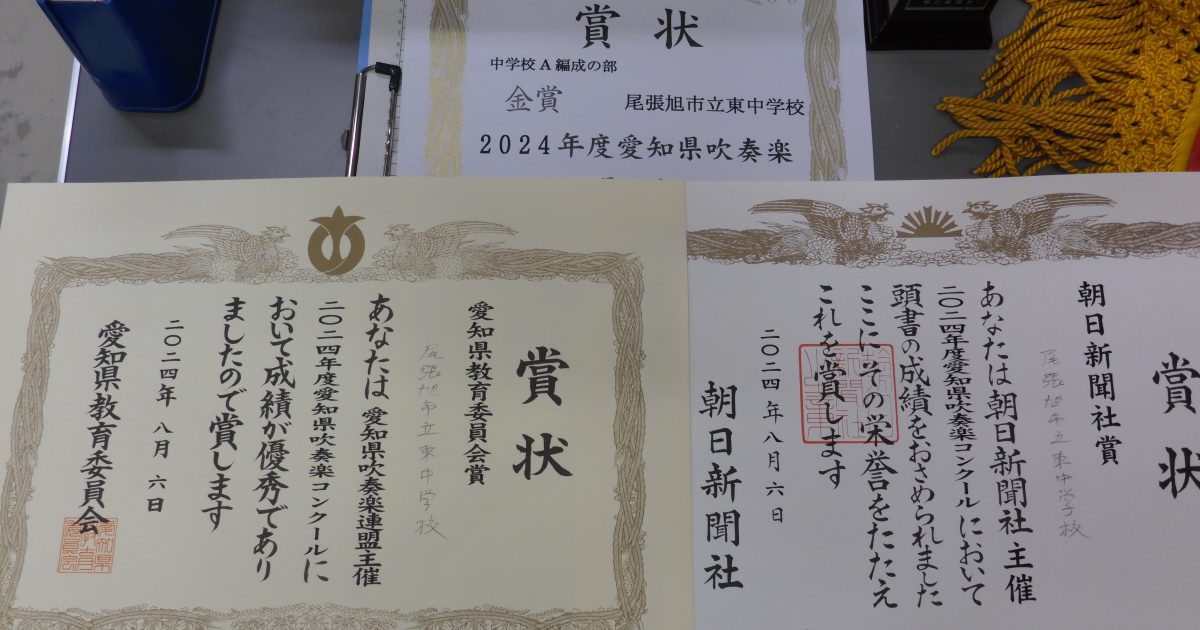 賞状
中学校A編成の部
金賞 尾張旭市立東中学校
2024年度愛知県吹奏楽
賞状
愛知県教育委員会賞
尾張旭市立東中学校
あなたは愛知県吹奏楽連盟主催
二〇二四年度愛知県吹奏楽コンクールに
おいて成績が優秀であり
ましたので賞します
二〇二四年八月六日
愛知県教育委員会
賞状
朝日新聞社賞
尾張旭市立東中学校
あなたは朝日新聞社主催
二〇二四年度愛知県吹奏楽コンクールにおいて
頭書の成績をおさめられました
ここにその栄誉をたたえ
これを賞します
二〇二四年八月六日
朝日新聞社